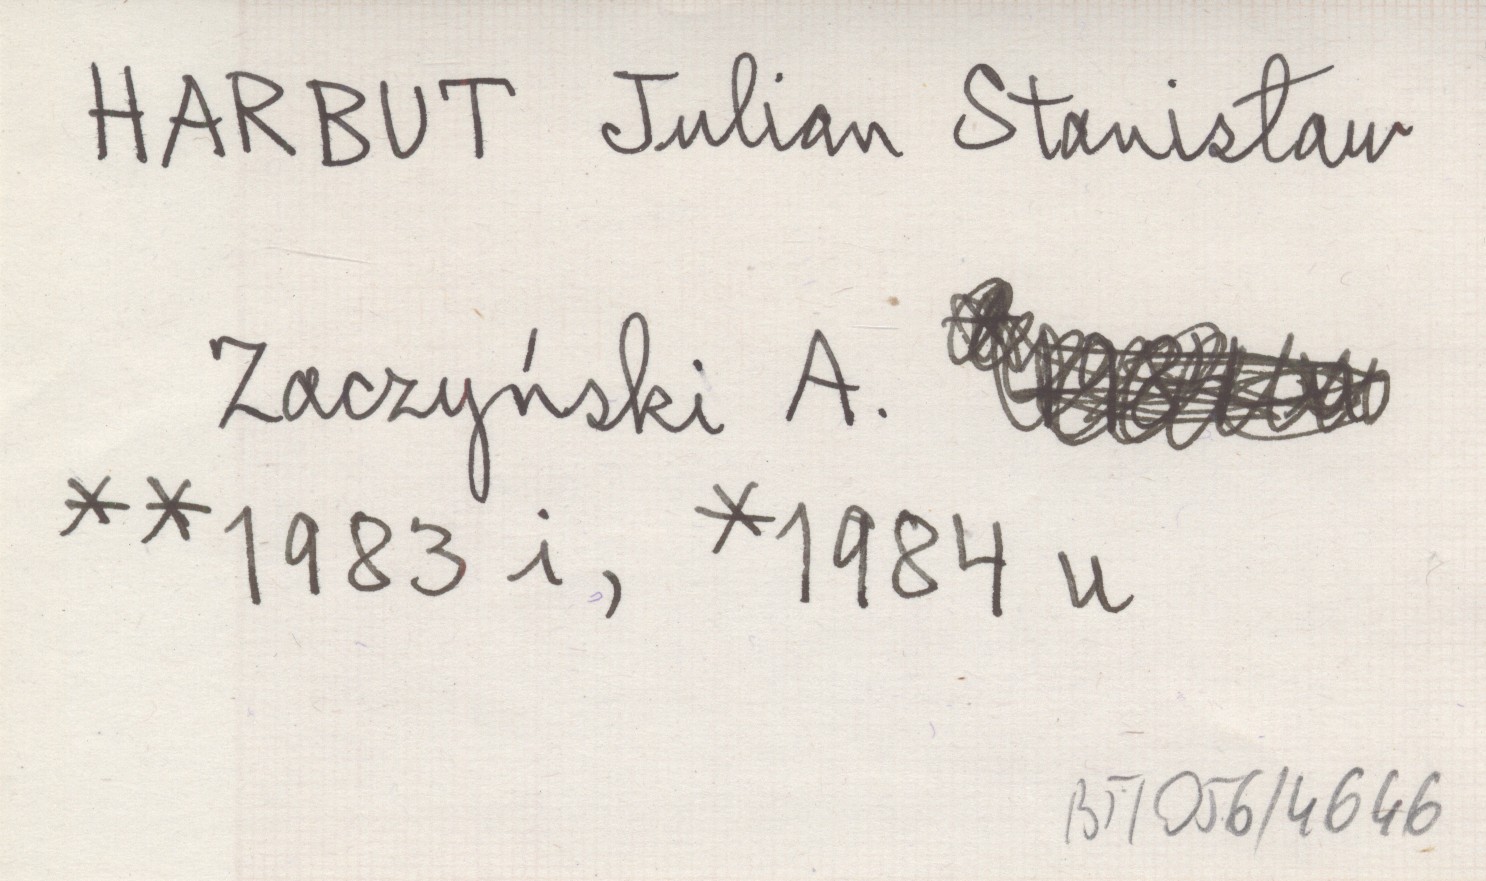 HARBUT Julian Stanisław
Zaczyński A.
**1983 i, *1984 u
BT/056/4646